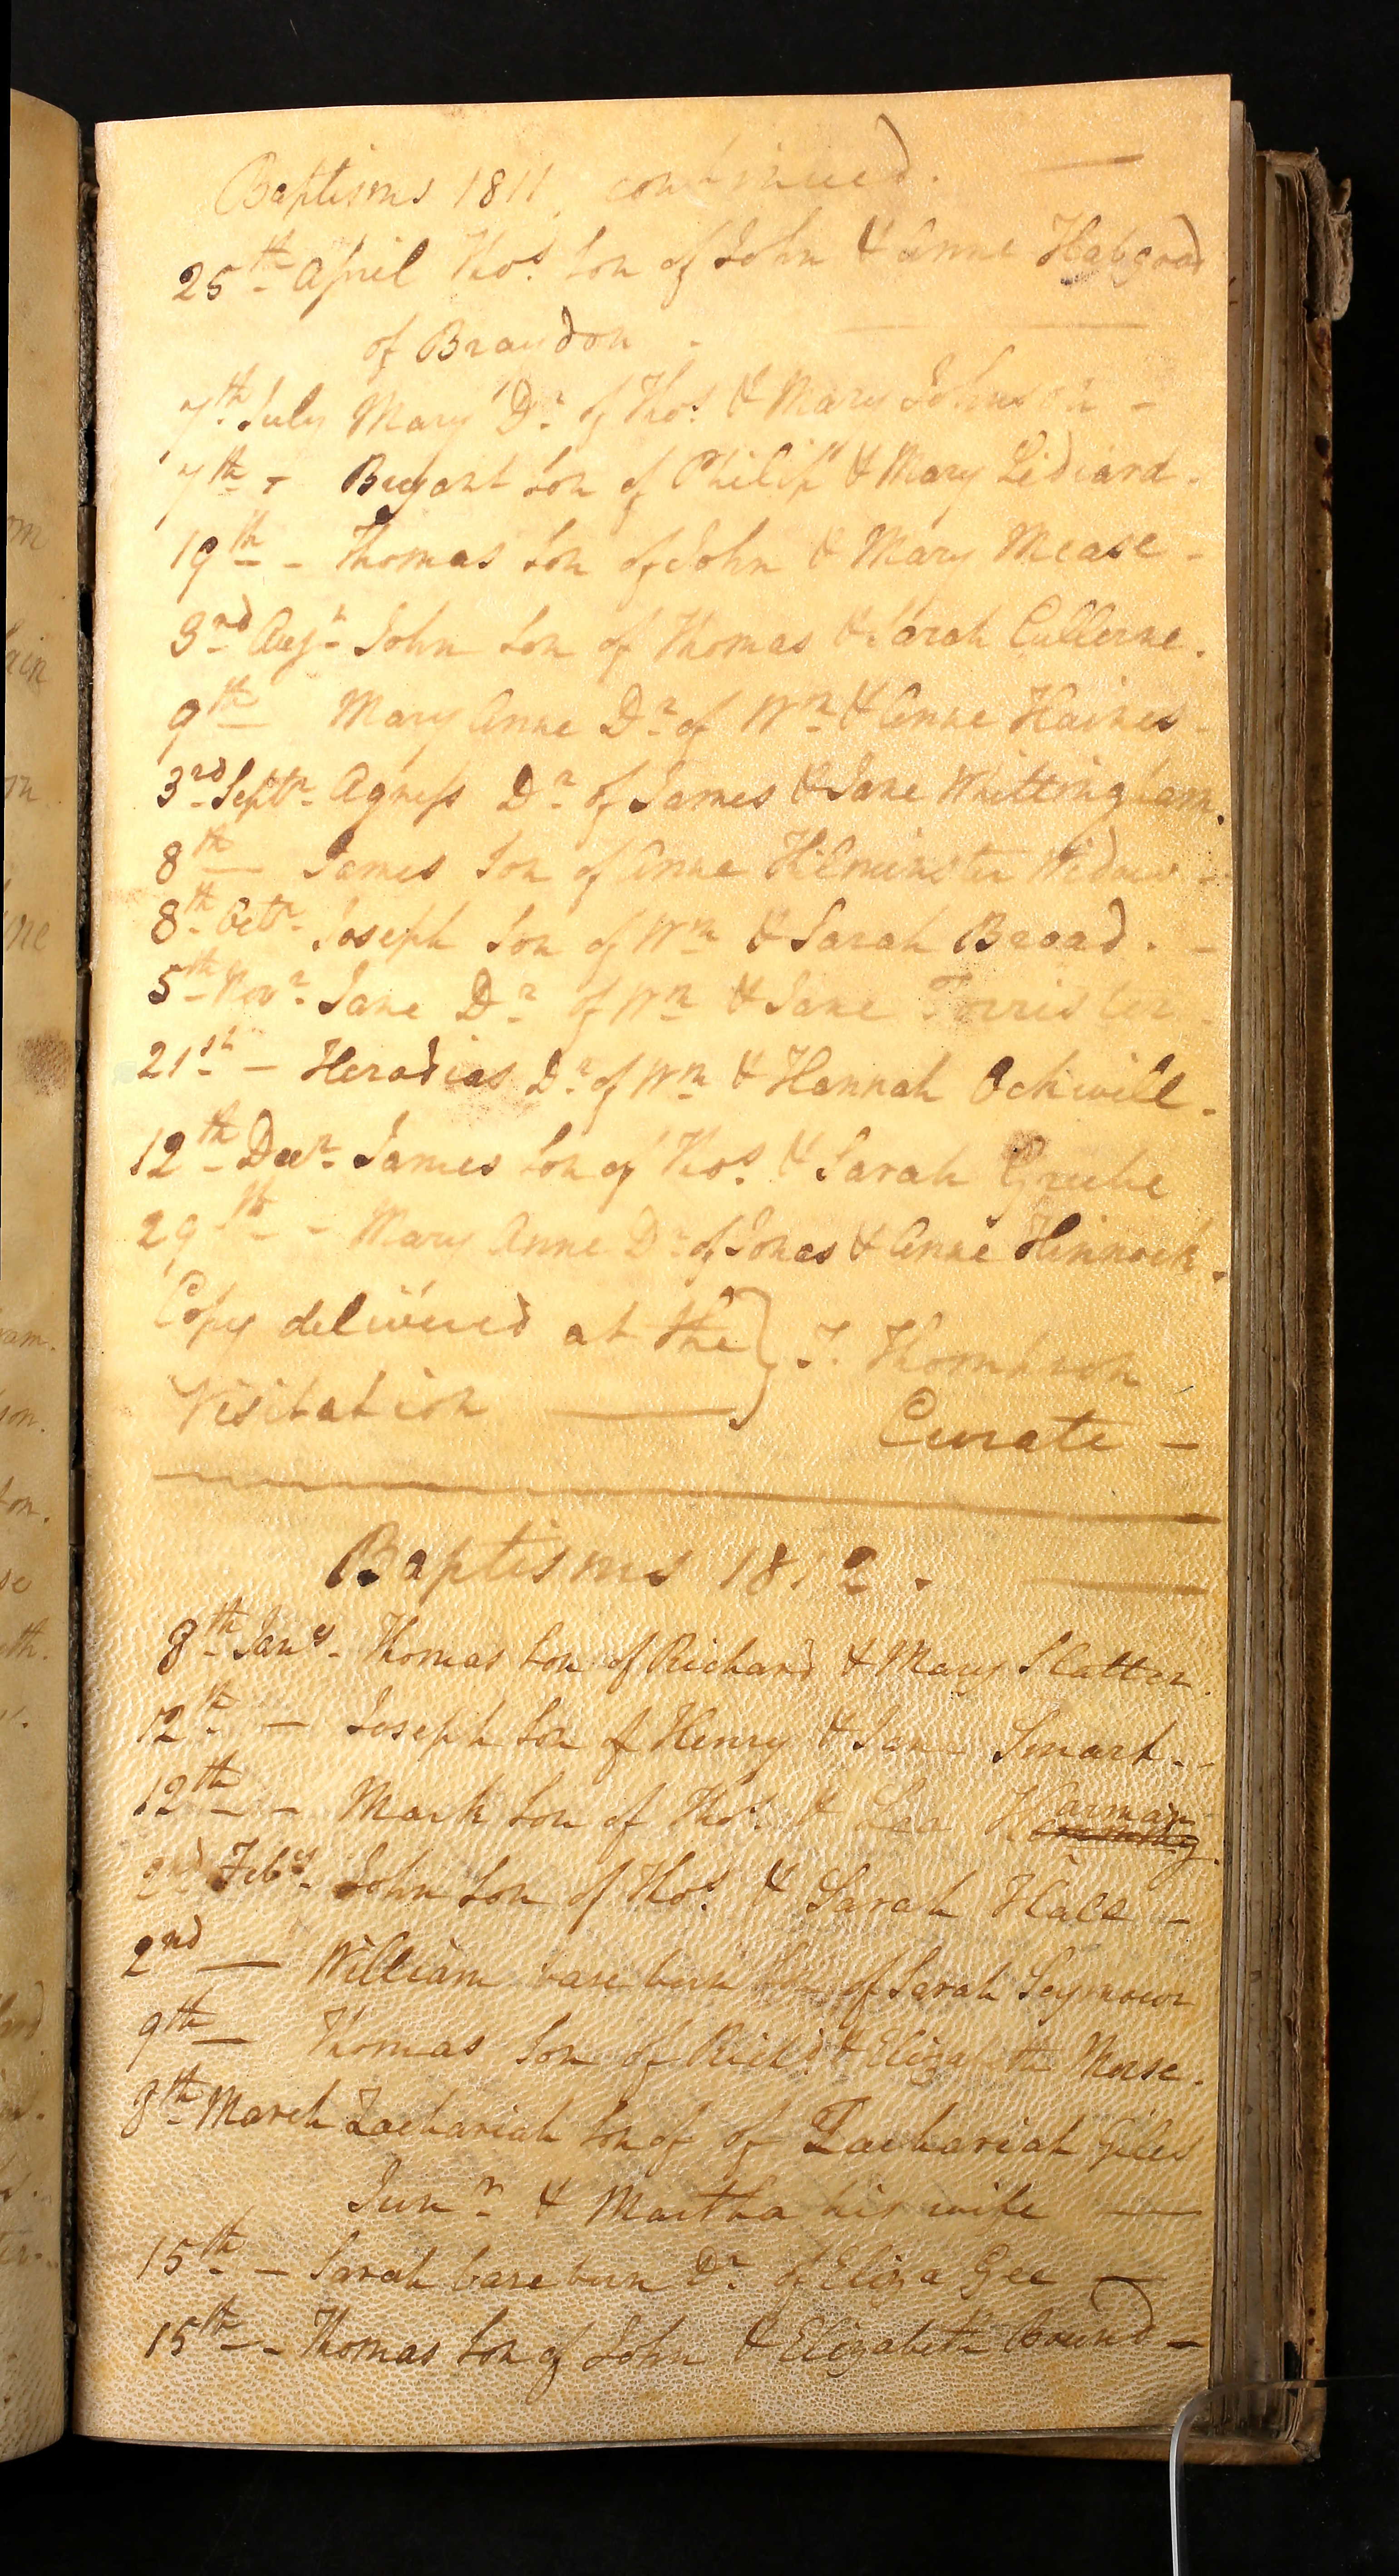 Baptisms 1811, continued. —
25th April Thos. Son of John & Anne Habgood
of Brandon -
7th July Mary Dr. of Thos. & Mary Johnson -
7th - Bryant Son of Philip & Mary Lediard.
19th - Thomas Son of John & Mary Mease -
3rd Augt. John Son of Thomas & Sarah Cullerne.
9th Mary Anne Dr. of Wm & Anne Haines -
3rd Septr. Agness Dr. of James & Jane Whittingham.
8th — James Son of Anne Hilminster Widow -
8th Octr. Joseph Son of Wm & Sarah Broad. -
5th Novr. Jane Dr. of Wm & Jane
21st - Herodias Dr. of Wm & Hannah Ockwill.
12th Decr. James Son of Thos. & Sarah
29th - Mary Anne Dr. of Jonas & Anne Hinnock.
Copy delivered at the } J. Thomson
Visitation — } Curate -
Baptisms 1812. —
8th Jany. Thomas Son of Richard & Mary Slatter.
12th - Joseph Son of Henry & Jane Smart. -
12th - Mark Son of Thos. & Lea Harman
2nd Feby. John Son of Thos. & Sarah Hall -
2nd — William base born Son of Sarah Seymour
9th — Thomas Son of Richd. & Elizabeth Morse.
8th March Zachariah Son of of Zachariah Giles
Junr. & Martha his wife —
15th - Sarah base born Dr. of Eliza Gee —
15th - Thomas Son of John & Elizabeth Bound -